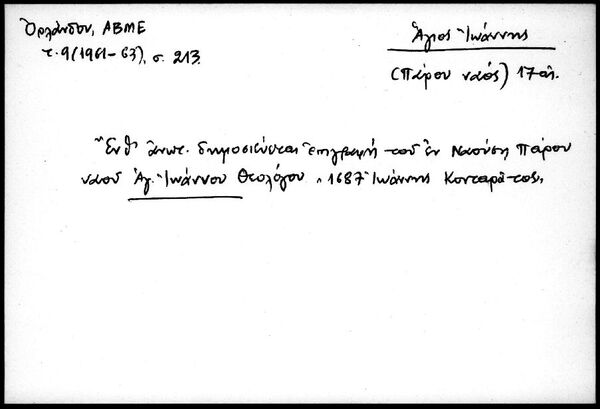 Ὀρλάνδου, ΑΒΜΕ
τ. 9 (1961-63), σ. 213.
Ἅγιος Ἰωάννης
(Πάρου ναός) 17 αἰ.
Ἔνθ' ἀνωτ. δημοσιεύεται ἐπιγραφή τοῦ ἐν Ναούσῃ Πάρου
ναοῦ Ἁγ. Ἰωάννου Θεολόγου "1687 Ἰωάννης Κονταρᾶτος"